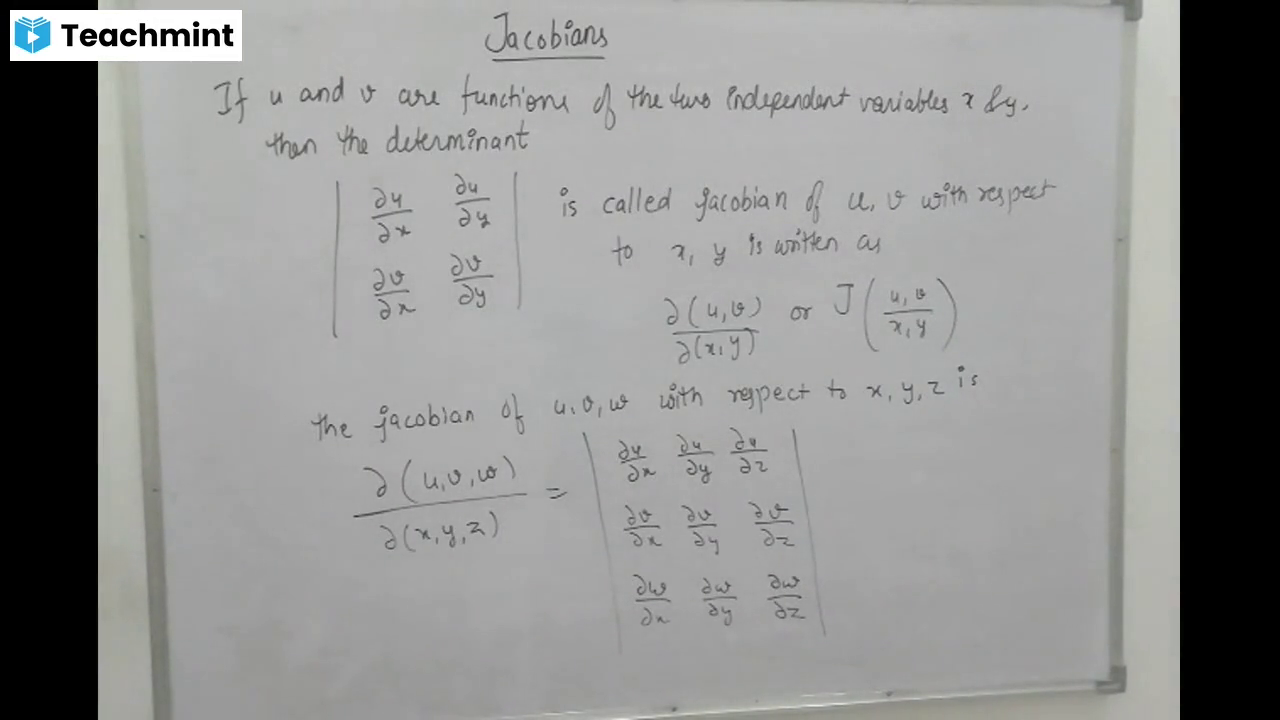 Teachmint
Jacobians
If u and v are functions of the two independent variables x & y.
then the determinant
| ∂u/∂x ∂u/∂y |
| ∂v/∂x ∂v/∂y |
is called jacobian of u, v with respect
to x, y is written as
∂(u,v)/∂(x,y) or J(u,v/x,y)
the jacobian of u,v,w with respect to x, y, z is
∂(u,v,w)/∂(x,y,z) =
| ∂u/∂x ∂u/∂y ∂u/∂z |
| ∂v/∂x ∂v/∂y ∂v/∂z |
| ∂w/∂x ∂w/∂y ∂w/∂z |